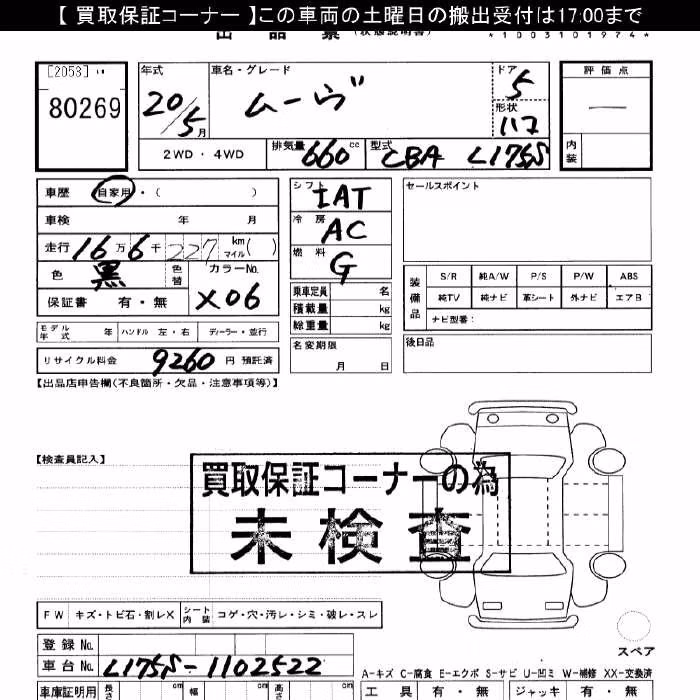 【 買取保証コーナー 】この車両の土曜日の搬出受付は17:00まで
出 品 票 (状態説明書)
*1003101974*
[2053]
80269
年式 20/5月
車名・グレード ムーヴ
ドア 5
形状 117
評価点 —
内装
2WD ・ 4WD
排気量 660 cc
型式 CBA L175S
車歴 自家用 ・ ( )
シフト IAT
セールスポイント
車検 年 月
冷房 AC
走行 16万 6千 227 km マイル ( )
燃料 G
色 黒 色替 カラーNo. X06
保証書 有・無
乗車定員 名
積載量 kg
総重量 kg
装備品
S/R 純A/W P/S P/W ABS
純TV 純ナビ 革シート 外ナビ エアB
ナビ型番:
モデル年式 年 ハンドル 左・右 ディーラー・並行
名変期限 月 日
後日品
リサイクル料金 9260 円 預託済
【出品店申告欄(不良箇所・欠品・注意事項等)】
【検査員記入】
買取保証コーナーの為
未検査
FW キズ・トビ石・割レX シート内装 コゲ・穴・汚レ・シミ・破レ・スレ
スペア
登録 No.
車台 No. L175S-1102522
A-キズ C-腐食 E-エクボ S-サビ U-凹ミ W-補修 XX-交換済
車庫証明用 長さ cm 幅 cm 高さ cm
工具 有・無 ジャッキ 有・無